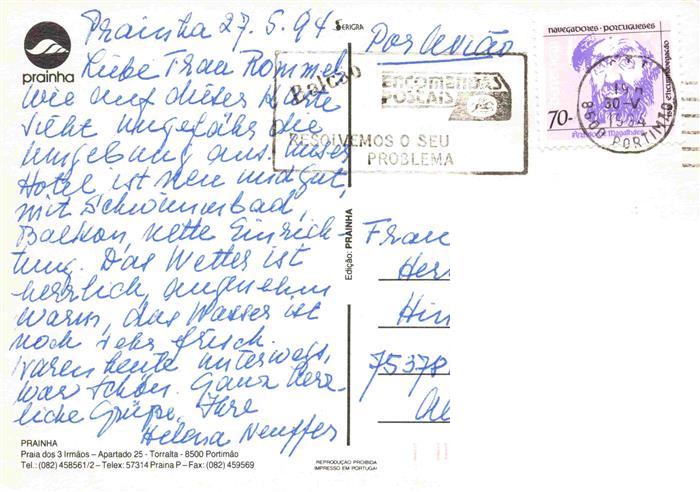 Prainha 27.5.94
Liebe Frau Rommel,
wie auf dieser Karte
sieht ungefähr die
Umgebung aus. Unser
Hotel ist neu und gut,
mit Schwimmbad,
Balkon, nette Einrich-
tung. Das Wetter ist
herrlich, angenehm
warm, das Wasser ist
noch sehr frisch.
Waren heute unterwegs,
war schön. Ganz herz-
liche Grüße, Ihre
Helena Neuffer
prainha
PRAINHA
Praia dos 3 Irmãos – Apartado 25 - Torralta - 8500 Portimão
Tel.: (082) 458561/2 – Telex: 57314 Praina P – Fax: (082) 459569
SERIGRA
Edição: PRAINHA
REPRODUÇÃO PROIBIDA
IMPRESSO EM PORTUGAL
Por Avião
Balcão
ENCOMENDAS
POSTAIS
RESOLVEMOS O SEU
PROBLEMA
NAVEGADORES · PORTUGUESES
circumnavegação
70-
Fernão de Magalhães
30-V
1994
8500 PORTIMÃO
Frau
Her
Hin
75378